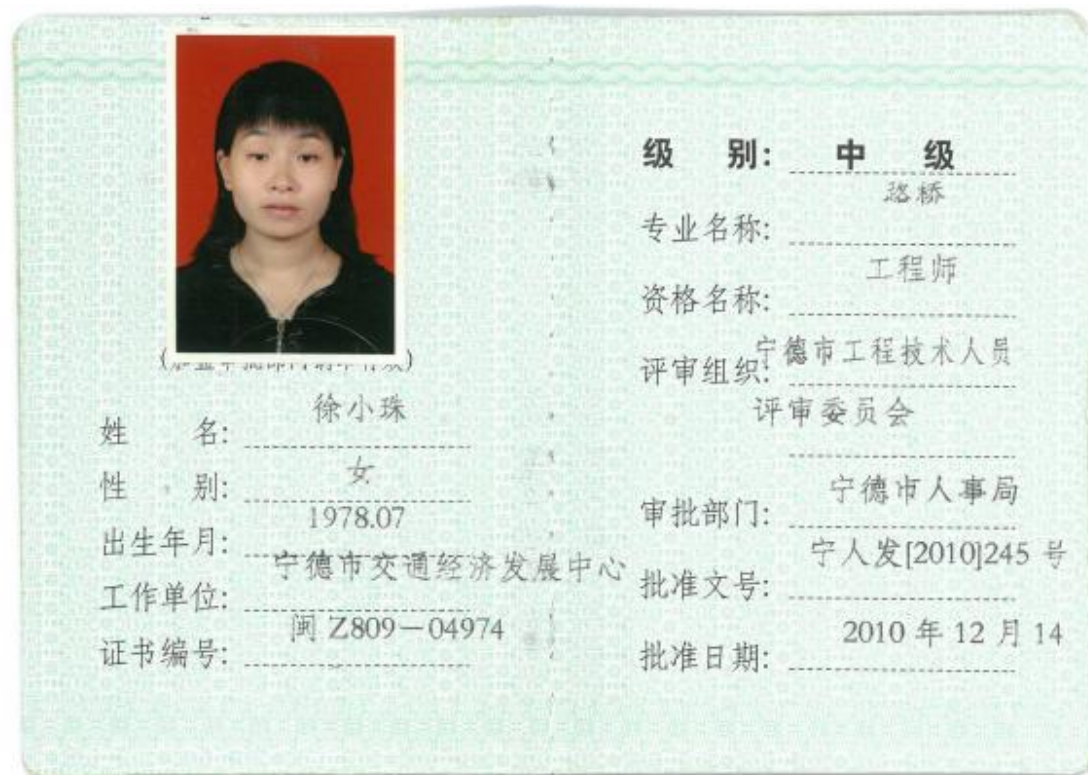 姓 名: 徐小珠
性 别: 女
出生年月: 1978.07
工作单位: 宁德市交通经济发展中心
证书编号: 闽 Z809-04974
级 别: 中 级
专业名称: 路桥
资格名称: 工程师
评审组织: 宁德市工程技术人员
评审委员会
审批部门: 宁德市人事局
批准文号: 宁人发[2010]245 号
批准日期: 2010 年 12 月 14